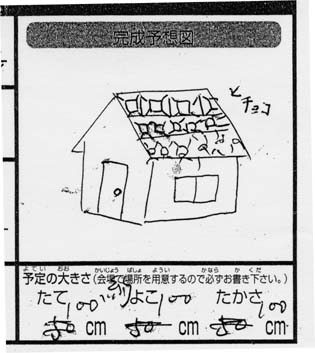 完成予想図
チョコ
予定の大きさ(会場で場所を用意するので必ずお書き下さい。)
たて100 よこ100 たかさ100
50 cm 50 cm 50 cm